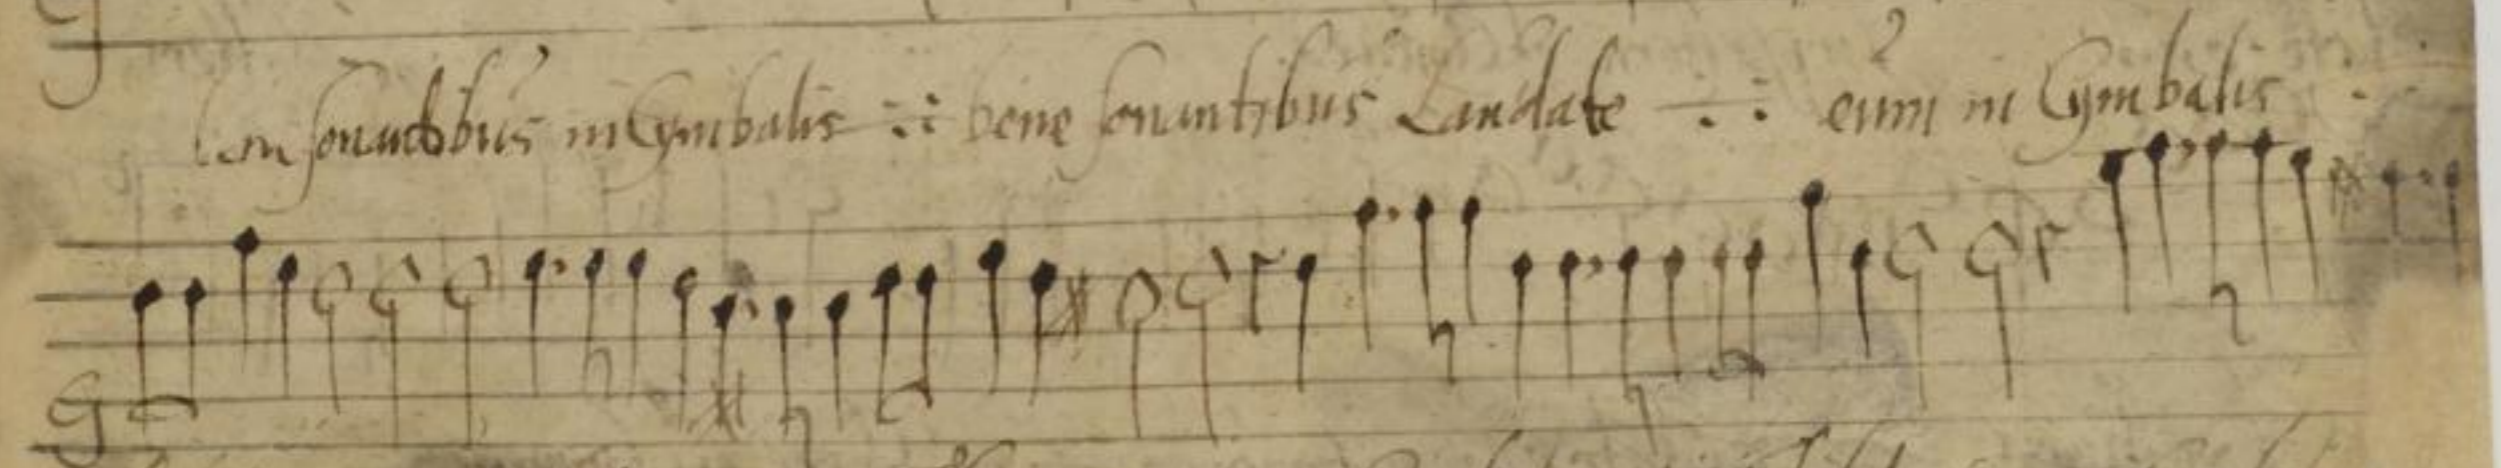 bene sonantibus in Cymbalis :: bene sonantibus Laudate :: eum in Cymbalis